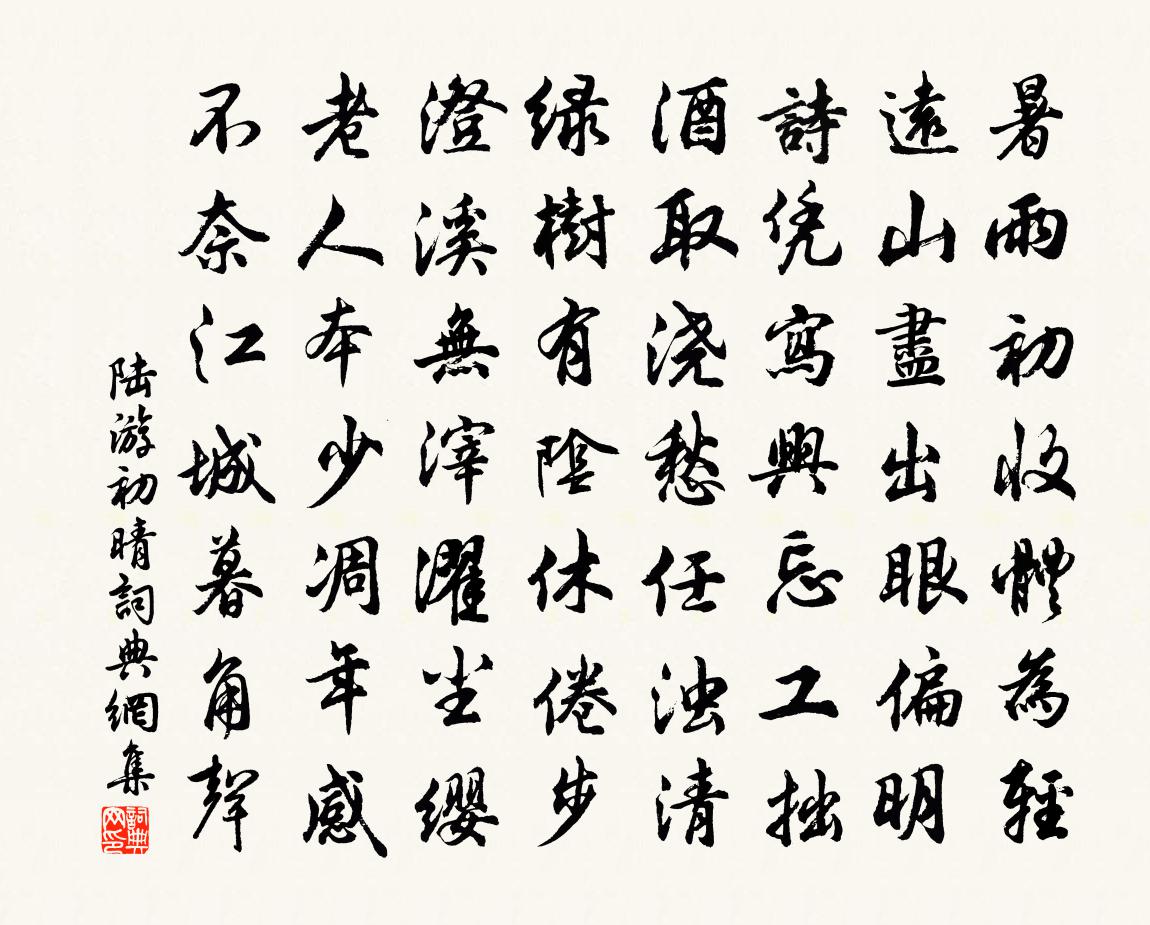 暑雨初收體為輕
遠山盡出眼偏明
詩凭寫興忘工拙
酒取浇愁任浊清
緑樹有陰休倦步
澄溪無滓濯尘缨
老人本少凋年感
不奈江城暮角聲
陆游初晴詞典網集
詞典
网印